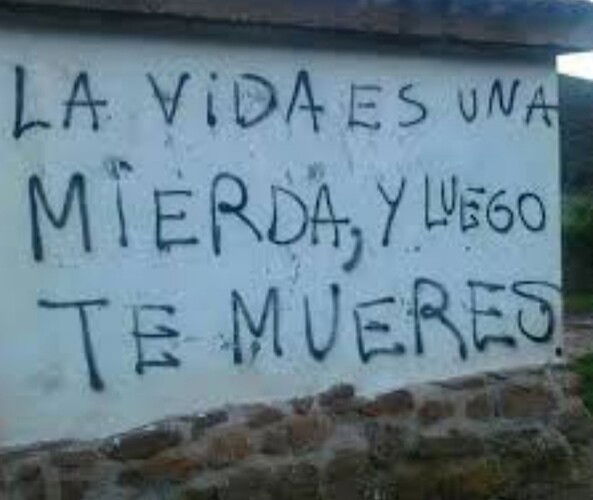 LA ViDA ES UNA
MIERDA, Y LUEGO
TE MUERES.